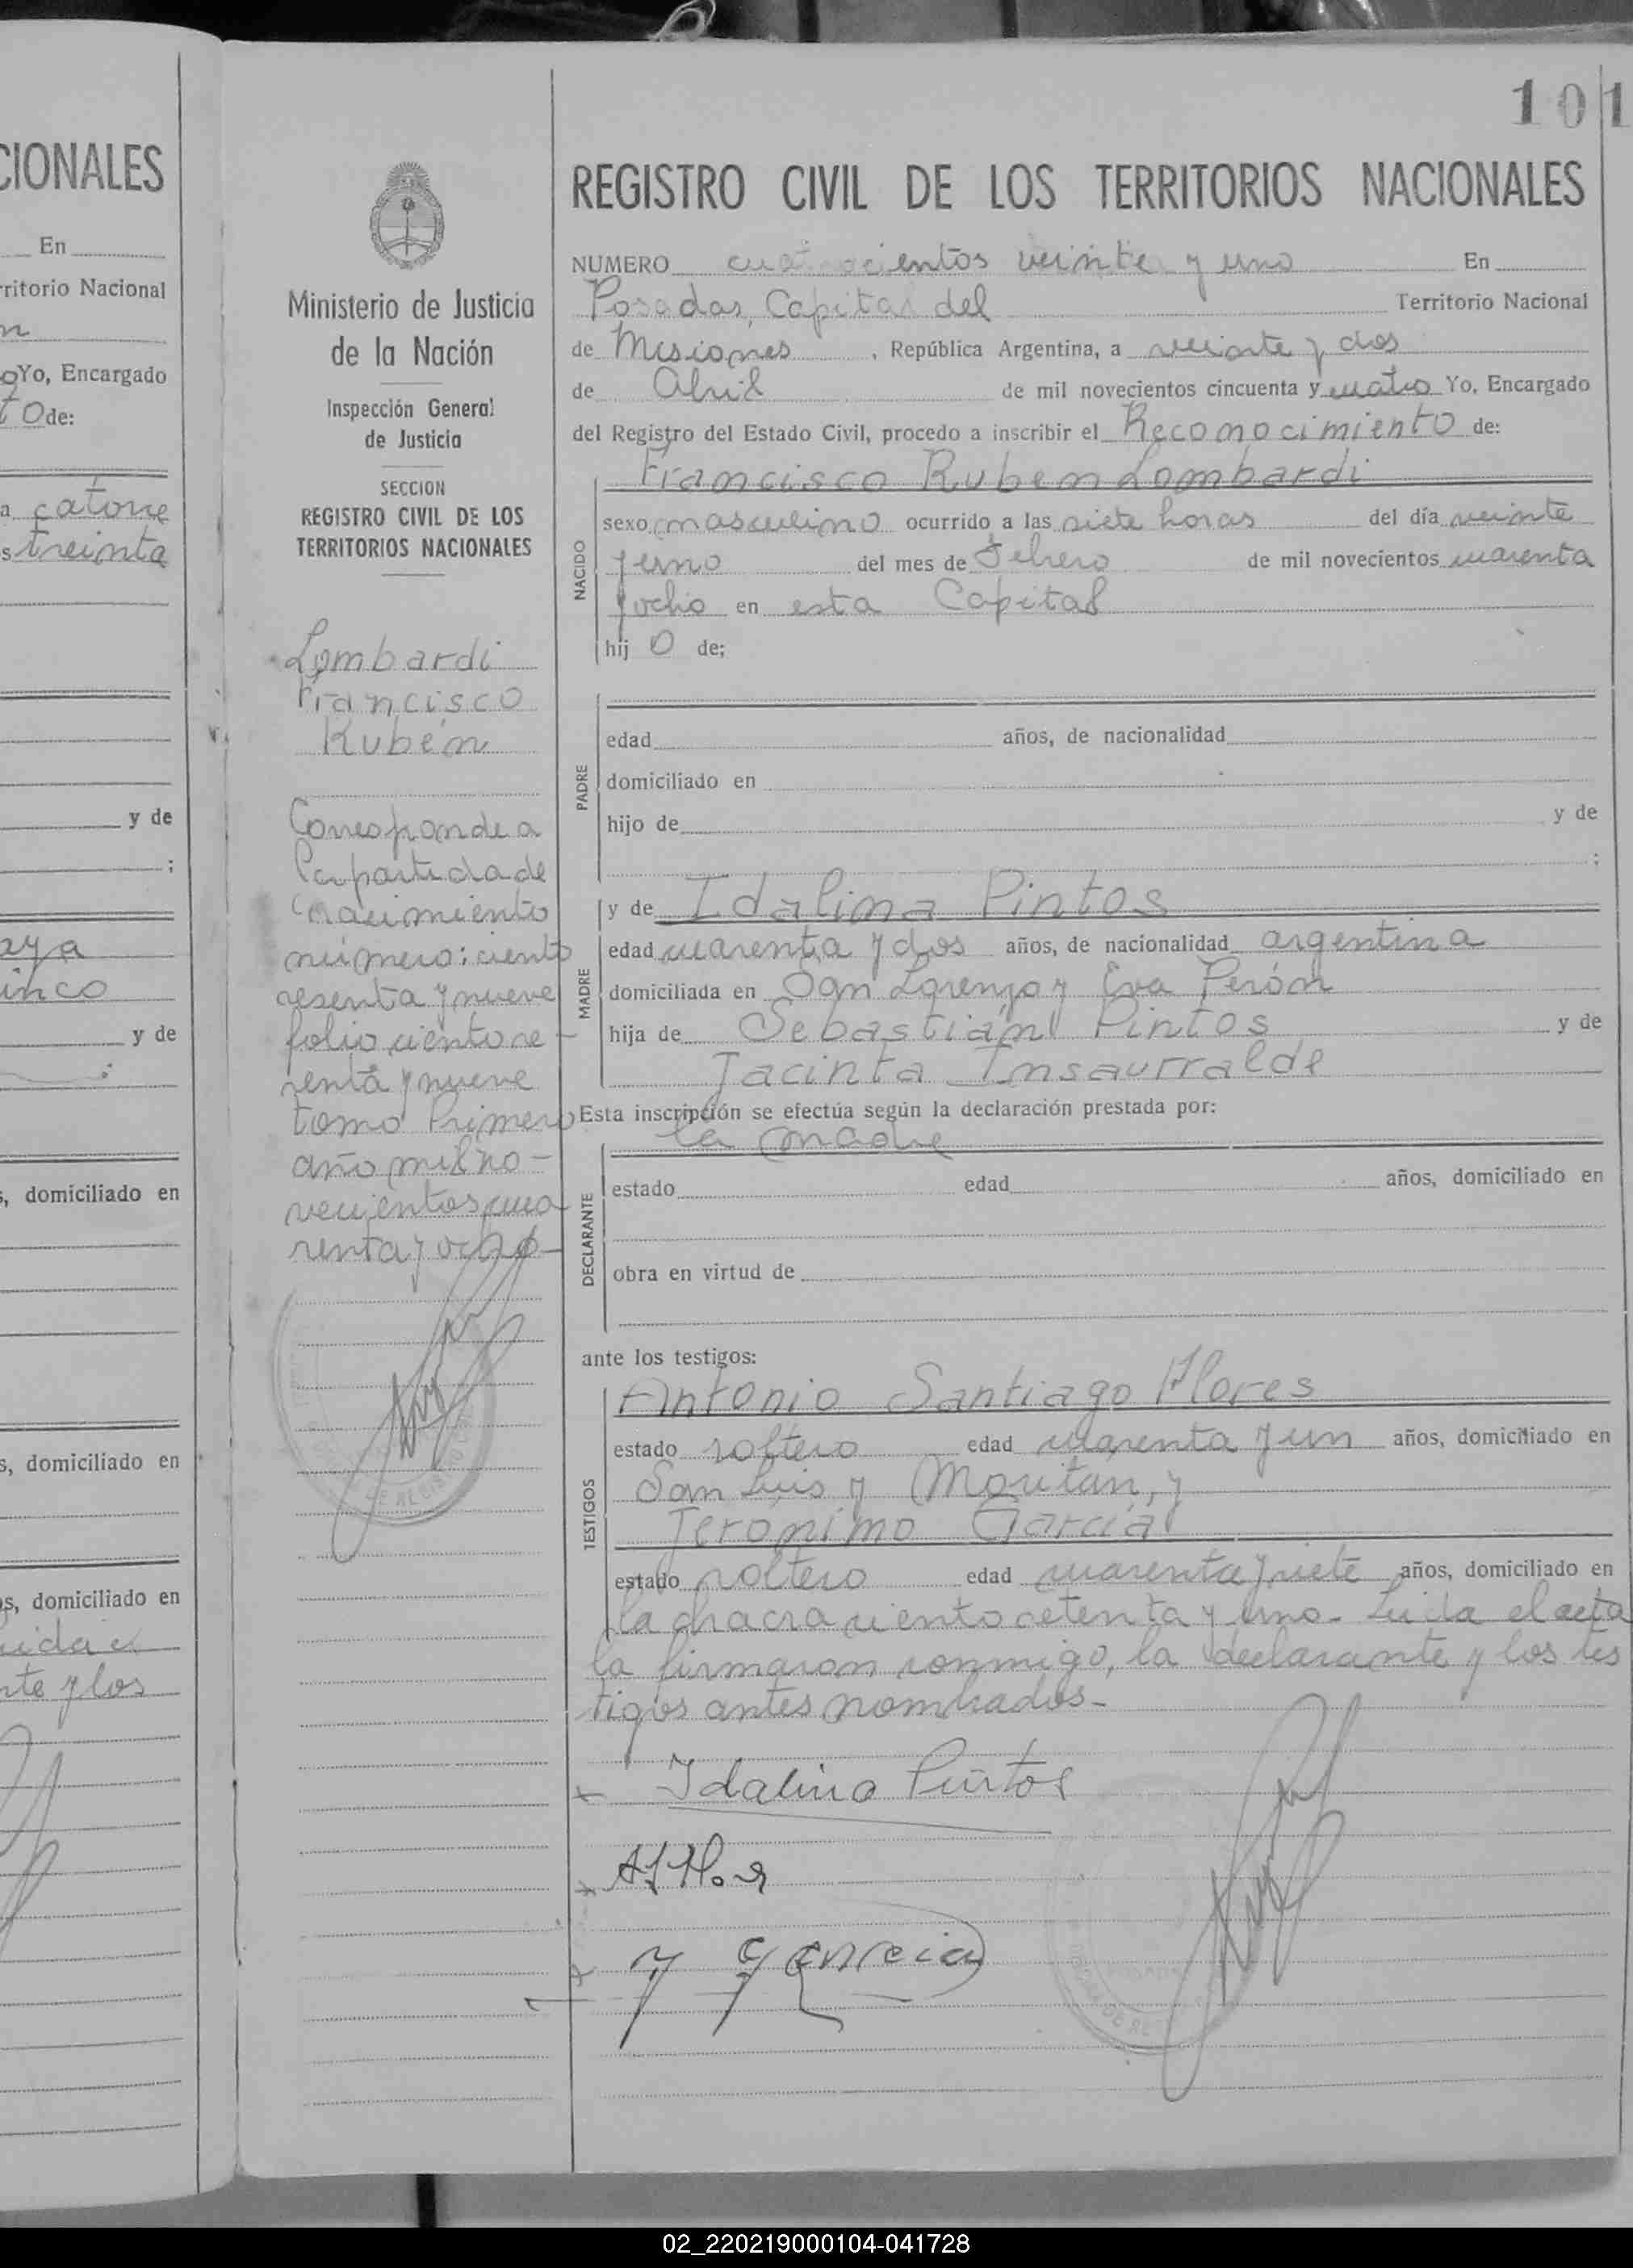 101
CIONALES
En
rritorio Nacional
Yo, Encargado
de:
a catorce
s treinta
y de
;
aya
inco
y de
s, domiciliado en
s, domiciliado en
os, domiciliado en
nte y los
Ministerio de Justicia
de la Nación
Inspección General
de Justicia
SECCION
REGISTRO CIVIL DE LOS
TERRITORIOS NACIONALES
Lombardi
Francisco
Rubén
Corresponde a
la partida de
nacimiento
número: ciento
sesenta y nueve
folio ciento se-
senta y nueve
tomo Primero
año mil no-
vecientos cua
renta y ocho-
REGISTRO CIVIL DE LOS TERRITORIOS NACIONALES
NUMERO cuatrocientos veinte y uno En
Posadas, Capital del Territorio Nacional
de Misiones , República Argentina, a veinte y dos
de Abril de mil novecientos cincuenta y cuatro Yo, Encargado
del Registro del Estado Civil, procedo a inscribir el Reconocimiento de:
Francisco Ruben Lombardi
NACIDO
sexo masculino ocurrido a las siete horas del día veinte
y uno del mes de Febrero de mil novecientos cuarenta
y ocho en esta Capital
hij o de;
PADRE
edad años, de nacionalidad
domiciliado en
hijo de y de
;
MADRE
y de Idalina Pintos
edad cuarenta y dos años, de nacionalidad argentina
domiciliada en San Lorenzo y Eva Perón
hija de Sebastián Pintos y de
Jacinta Insaurralde
Esta inscripción se efectúa según la declaración prestada por:
la madre
DECLARANTE
estado edad años, domiciliado en
obra en virtud de
ante los testigos:
TESTIGOS
Antonio Santiago Flores
estado soltero edad cuarenta y un años, domiciliado en
San Luis y Moritan, y
Jeronimo Garcia
estado soltero edad cuarenta y siete años, domiciliado en
la chacra ciento setenta y uno- Leida el acta
la firmaron conmigo, la declarante y los tes
tigos antes nombrados-
Idalina Pintos
J Garcia
02_220219000104-041728